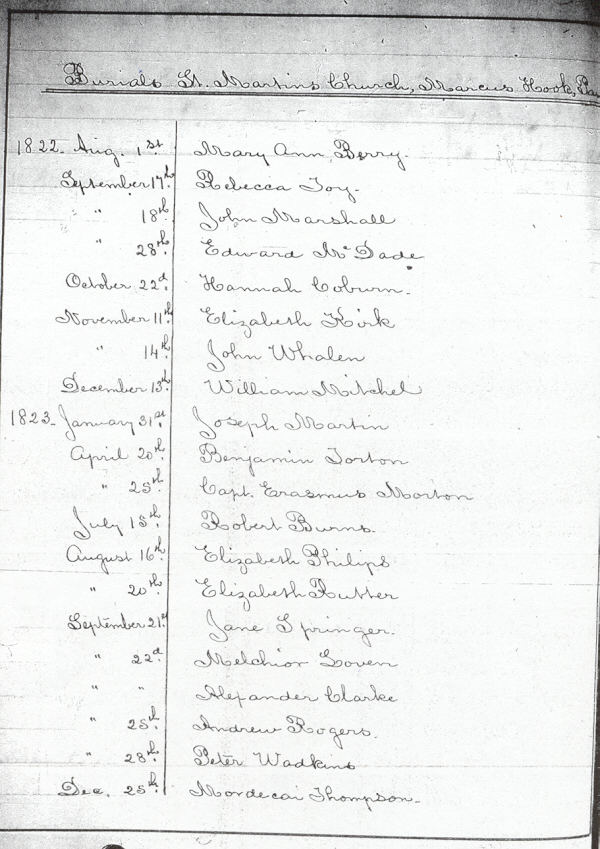 Burials St. Martins Church, Marcus Hook, Pa
1822. Aug. 1st. Mary Ann Berry.
September 17th. Rebecca Toy.
" 18th. John Marshall
" 28th. Edward McDade
October 22d. Hannah Coburn.
November 11th. Elizabeth Kirk
" 14th. John Whalen
December 13th. William Mitchel
1823. January 31st. Joseph Martin
April 20th. Benjamin Torton
" 25th. Capt. Erasmus Morton
July 15th. Robert Burns.
August 16th. Elizabeth Philips
" 20th. Elizabeth Rutter
September 21st Jane Springer.
" 22d. Melchior Loven
" " Alexander Clarke
" 25th. Andrew Rogers.
" 28th. Peter Wadkins
Dec. 25th. Mordecai Thompson.